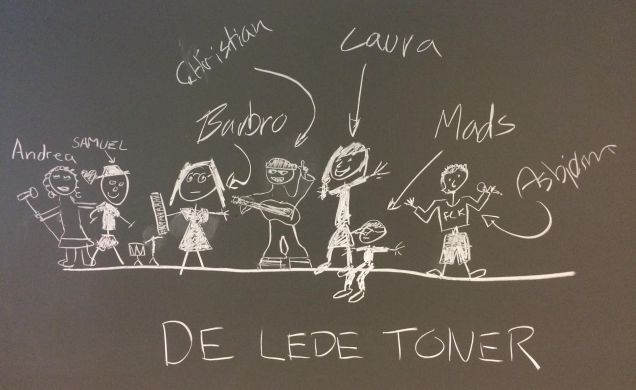 Christian
Laura
Barbro
Mads
Andrea
SAMUEL
Asbjørn
FCK
DE LEDE TONER